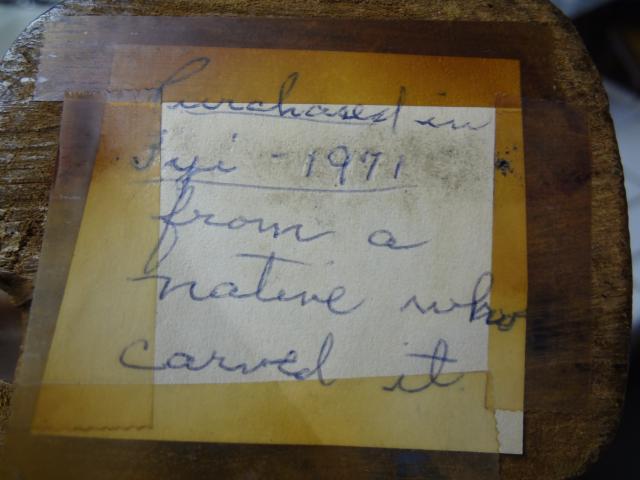 Purchased in
Fiji - 1971
from a
native who
carved it